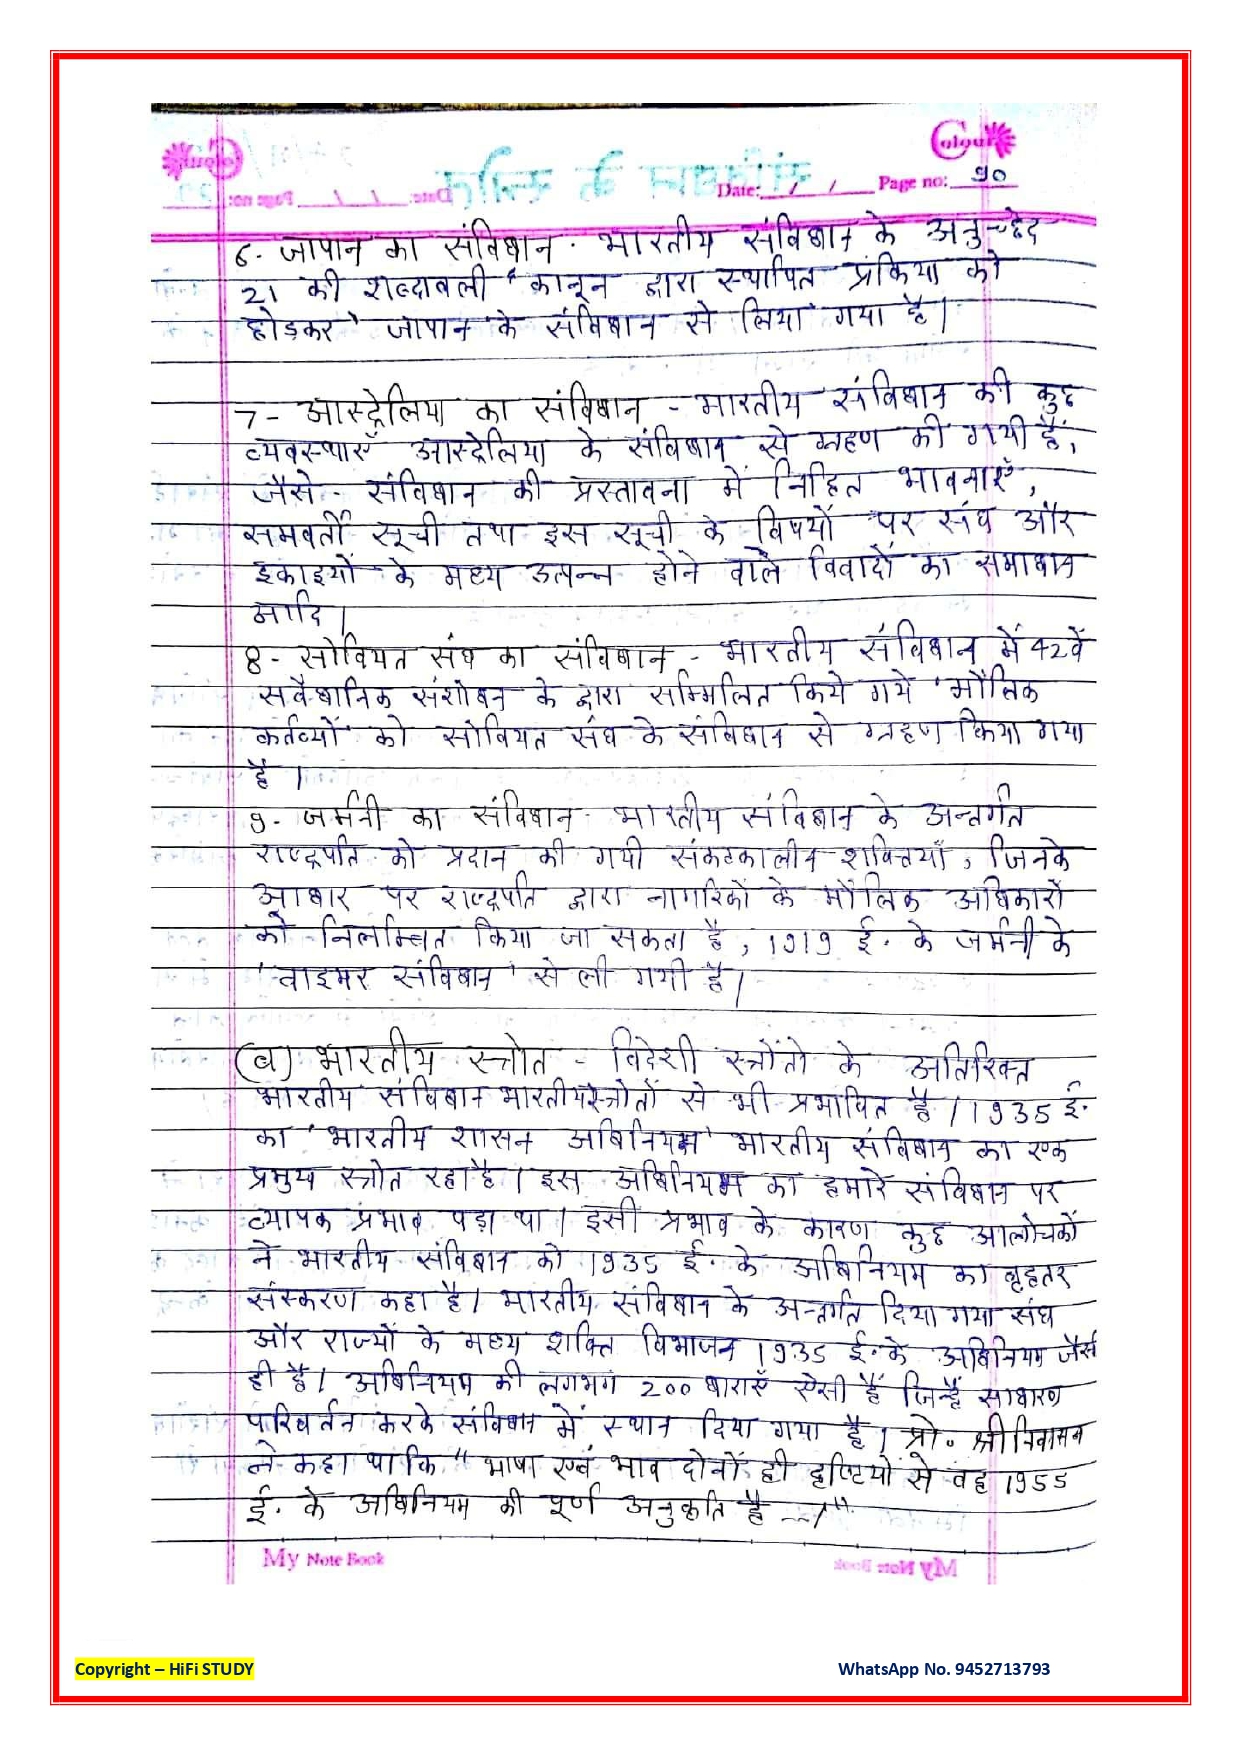 Colour
Date: / / Page no: 90
6- जापान का संविधान - भारतीय संविधान के अनुच्छेद
21 की शब्दावली ' कानून द्वारा स्थापित प्रक्रिया को
छोड़कर ' जापान के संविधान से लिया गया है।
7- आस्ट्रेलिया का संविधान - भारतीय संविधान की कुछ
व्यवस्थाएँ आस्ट्रेलिया के संविधान से ग्रहण की गयी हैं,
जैसे - संविधान की प्रस्तावना में निहित भावनाएँ,
समवर्ती सूची तथा इस सूची के विषयों पर संघ और
इकाइयों के मध्य उत्पन्न होने वाले विवादों का समाधान
आदि।
8- सोवियत संघ का संविधान - भारतीय संविधान में 42वें
सवैधानिक संशोधन के द्वारा सम्मिलित किये गये ' मौलिक
कर्तव्यों को सोवियत संघ के संविधान से ग्रहण किया गया
है ।
9- जर्मनी का संविधान - भारतीय संविधान के अन्तर्गत
राष्ट्रपति को प्रदान की गयी संकटकालीन शक्तियाँ, जिनके
आधार पर राष्ट्रपति द्वारा नागरिकों के मौलिक अधिकारों
को निलम्बित किया जा सकता है, 1919 ई. के जर्मनी के
' वाइमर संविधान ' से ली गयी है।
(ब) भारतीय स्त्रोत - विदेशी स्त्रोंतो के अतिरिक्त
भारतीय संविधान भारतीय स्त्रोतों से भी प्रभावित है। 1935 ई.
का ' भारतीय शासन अधिनियम ' भारतीय संविधान का एक
प्रमुख स्त्रोत रहा है। इस अधिनियम का हमारे संविधान पर
व्यापक प्रभाव पड़ा था। इसी प्रभाव के कारण कुछ आलोचकों
ने भारतीय संविधान को 1935 ई. के अधिनियम का वृहत्तर
संस्करण कहा है। भारतीय संविधान के अन्तर्गत दिया गया संघ
और राज्यों के मध्य शक्ति विभाजन 1935 ई. के अधिनियम जैसे
ही है। अधिनियम की लगभग 200 धाराएँ ऐसी हैं जिन्हें साधारण
परिवर्तन करके संविधान में स्थान दिया गया है। प्रो. श्रीनिवासन
ने कहा था कि " भाषा एवं भाव दोनों ही दृष्टियों से वह 1955
ई. के अधिनियम की पूर्ण अनुकृति है --।"
My Note Book
Copyright – HiFi STUDY WhatsApp No. 9452713793